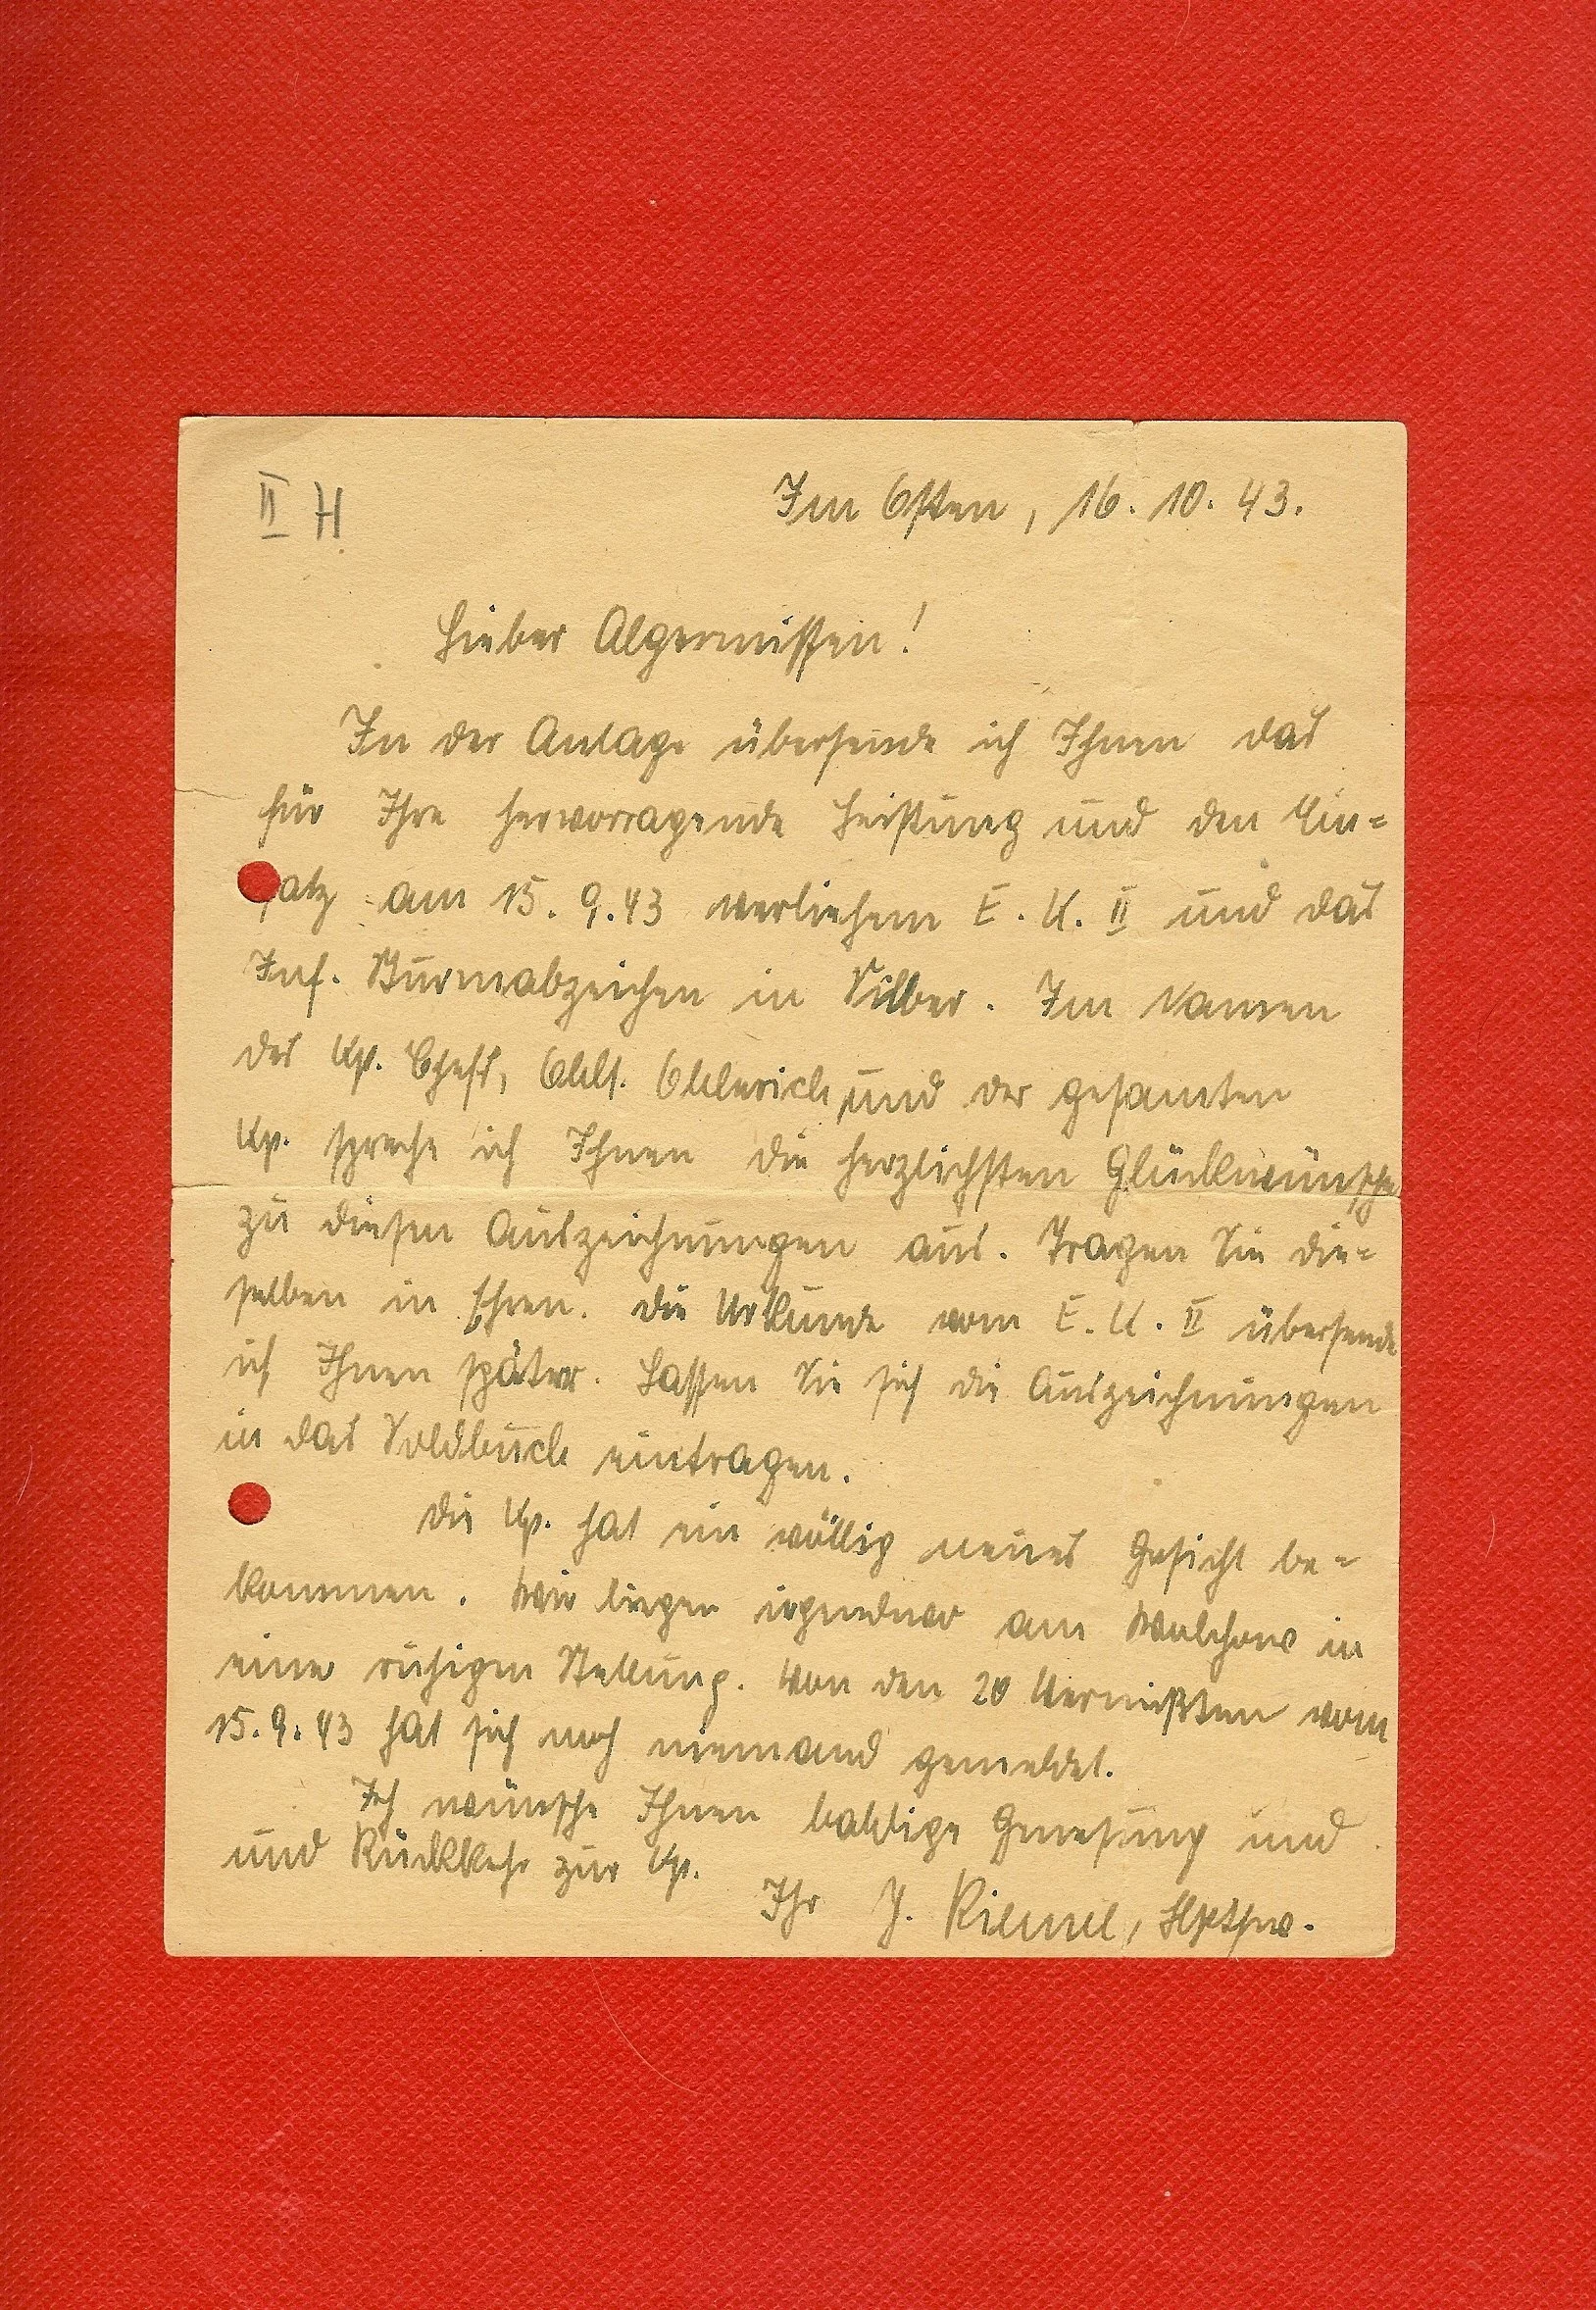 II H.
Im Osten, 16. 10. 43.
Lieber Algermissen!
In der Anlage übersende ich Ihnen das
für Ihre hervorragende Leistung und den Ein-
satz am 15. 9. 43 verliehene E. K. II und das
Inf. Sturmabzeichen in Silber. Im Namen
des Kp. Chefs, Oblt. und der gesamten
Kp. spreche ich Ihnen die herzlichsten Glückwünsche
zu diesen Auszeichnungen aus. Tragen Sie die-
selben in Ehren. Die Urkunde vom E. K. II übersende
ich Ihnen später. Lassen Sie sich die Auszeichnungen
in das Soldbuch eintragen.
Die Kp. hat ein völlig neues Gesicht be-
kommen. Wir liegen irgendwo am Wolchow in
einer ruhigen Stellung. Von den 20 Vermißten vom
15. 9. 43 hat sich noch niemand gemeldet.
Ich wünsche Ihnen baldige Genesung und
und Rückkehr zur Kp.
Ihr J. Hptfw.